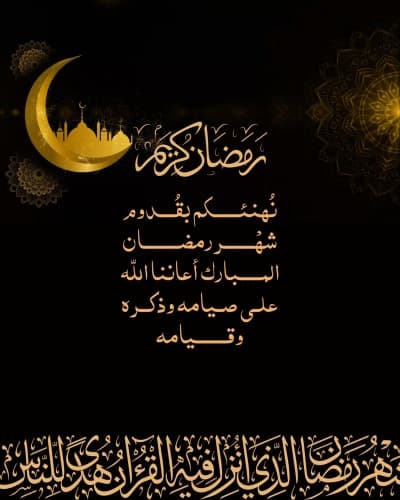 رمضان كريم
نُهنئكم بقُدوم
شهْر رمضان
المبارك أعاننا الله
على صيامه وذكره
وقيامه
شَهْرُ رَمَضَانَ الَّذِي أُنْزِلَ فِيهِ الْقُرْآنُ هُدًى لِلنَّاسِ